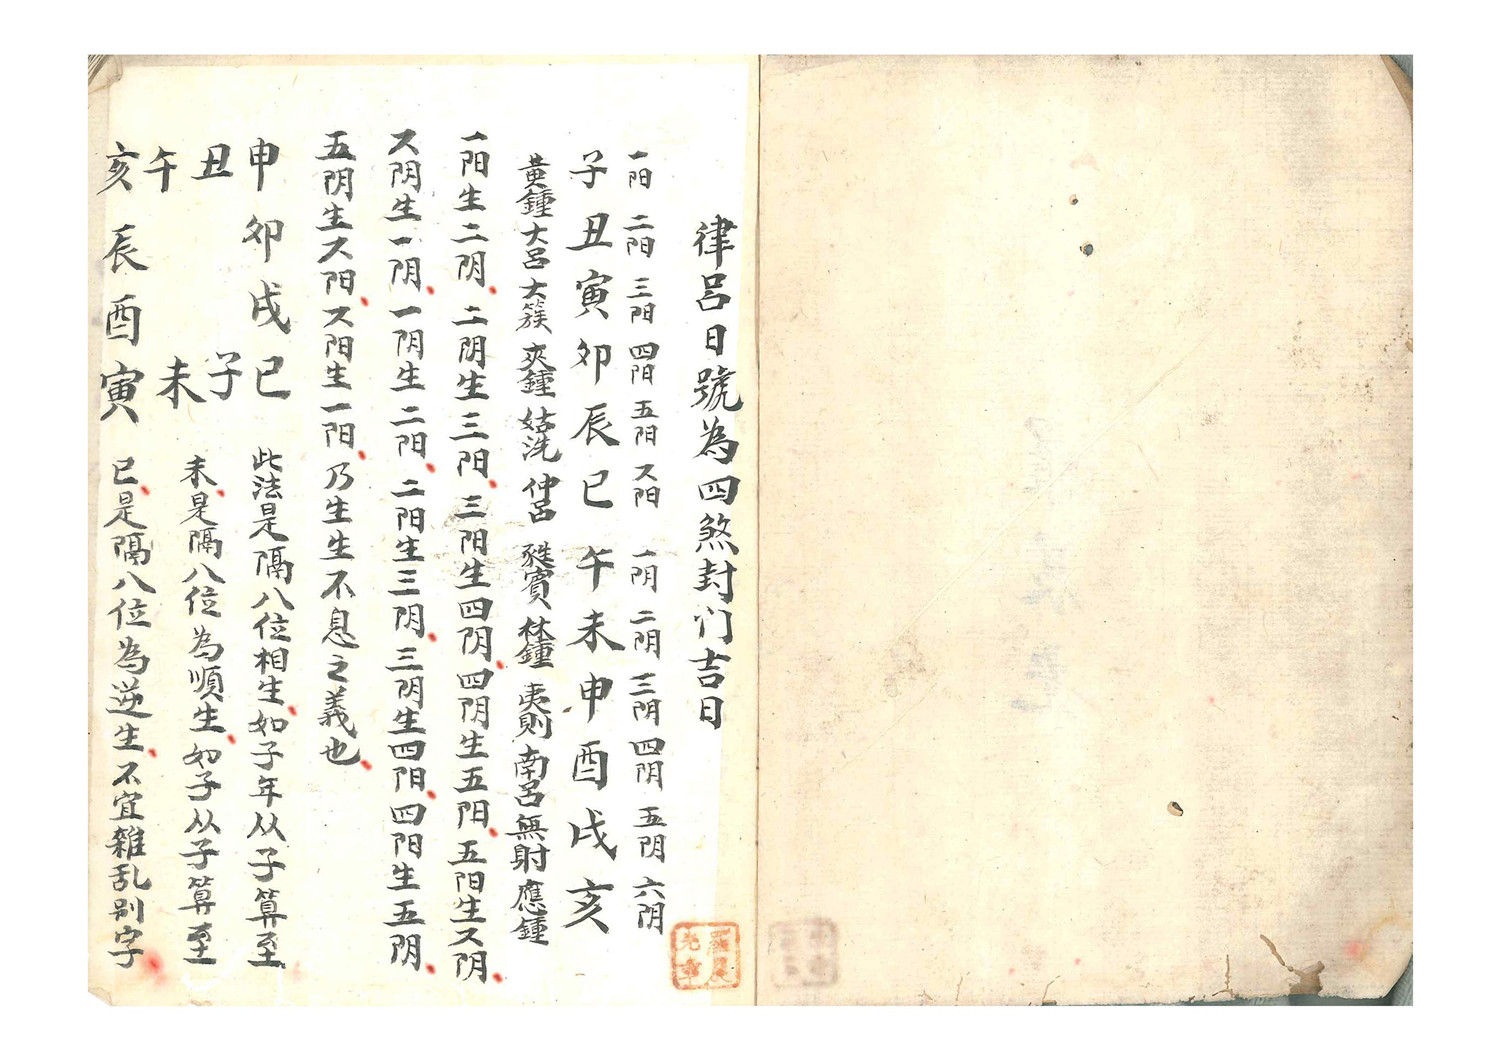 律呂日號為四煞封门吉日
一阳 二阳 三阳 四阳 五阳 六阳 一阴 二阴 三阴 四阴 五阴 六阴
子丑寅卯辰巳午未申酉戌亥
黄鍾 大呂 大簇 夾鍾 姑洗 仲呂 蕤賓 林鍾 夷則 南呂 無射 應鍾
一阳生二阴、二阴生三阳、三阳生四阴、四阴生五阳、五阳生六阴、
六阴生一阴、一阴生二阳、二阳生三阴、三阴生四阳、四阳生五阴、
五阴生六阳、六阳生一阳、乃生生不息之義也、
申卯戌巳 此法是隔八位相生、如子年从子算至
丑子
午未 未、是隔八位為順生、如子从子算至
亥辰酉寅 巳、是隔八位為逆生、不宜雜乱别字